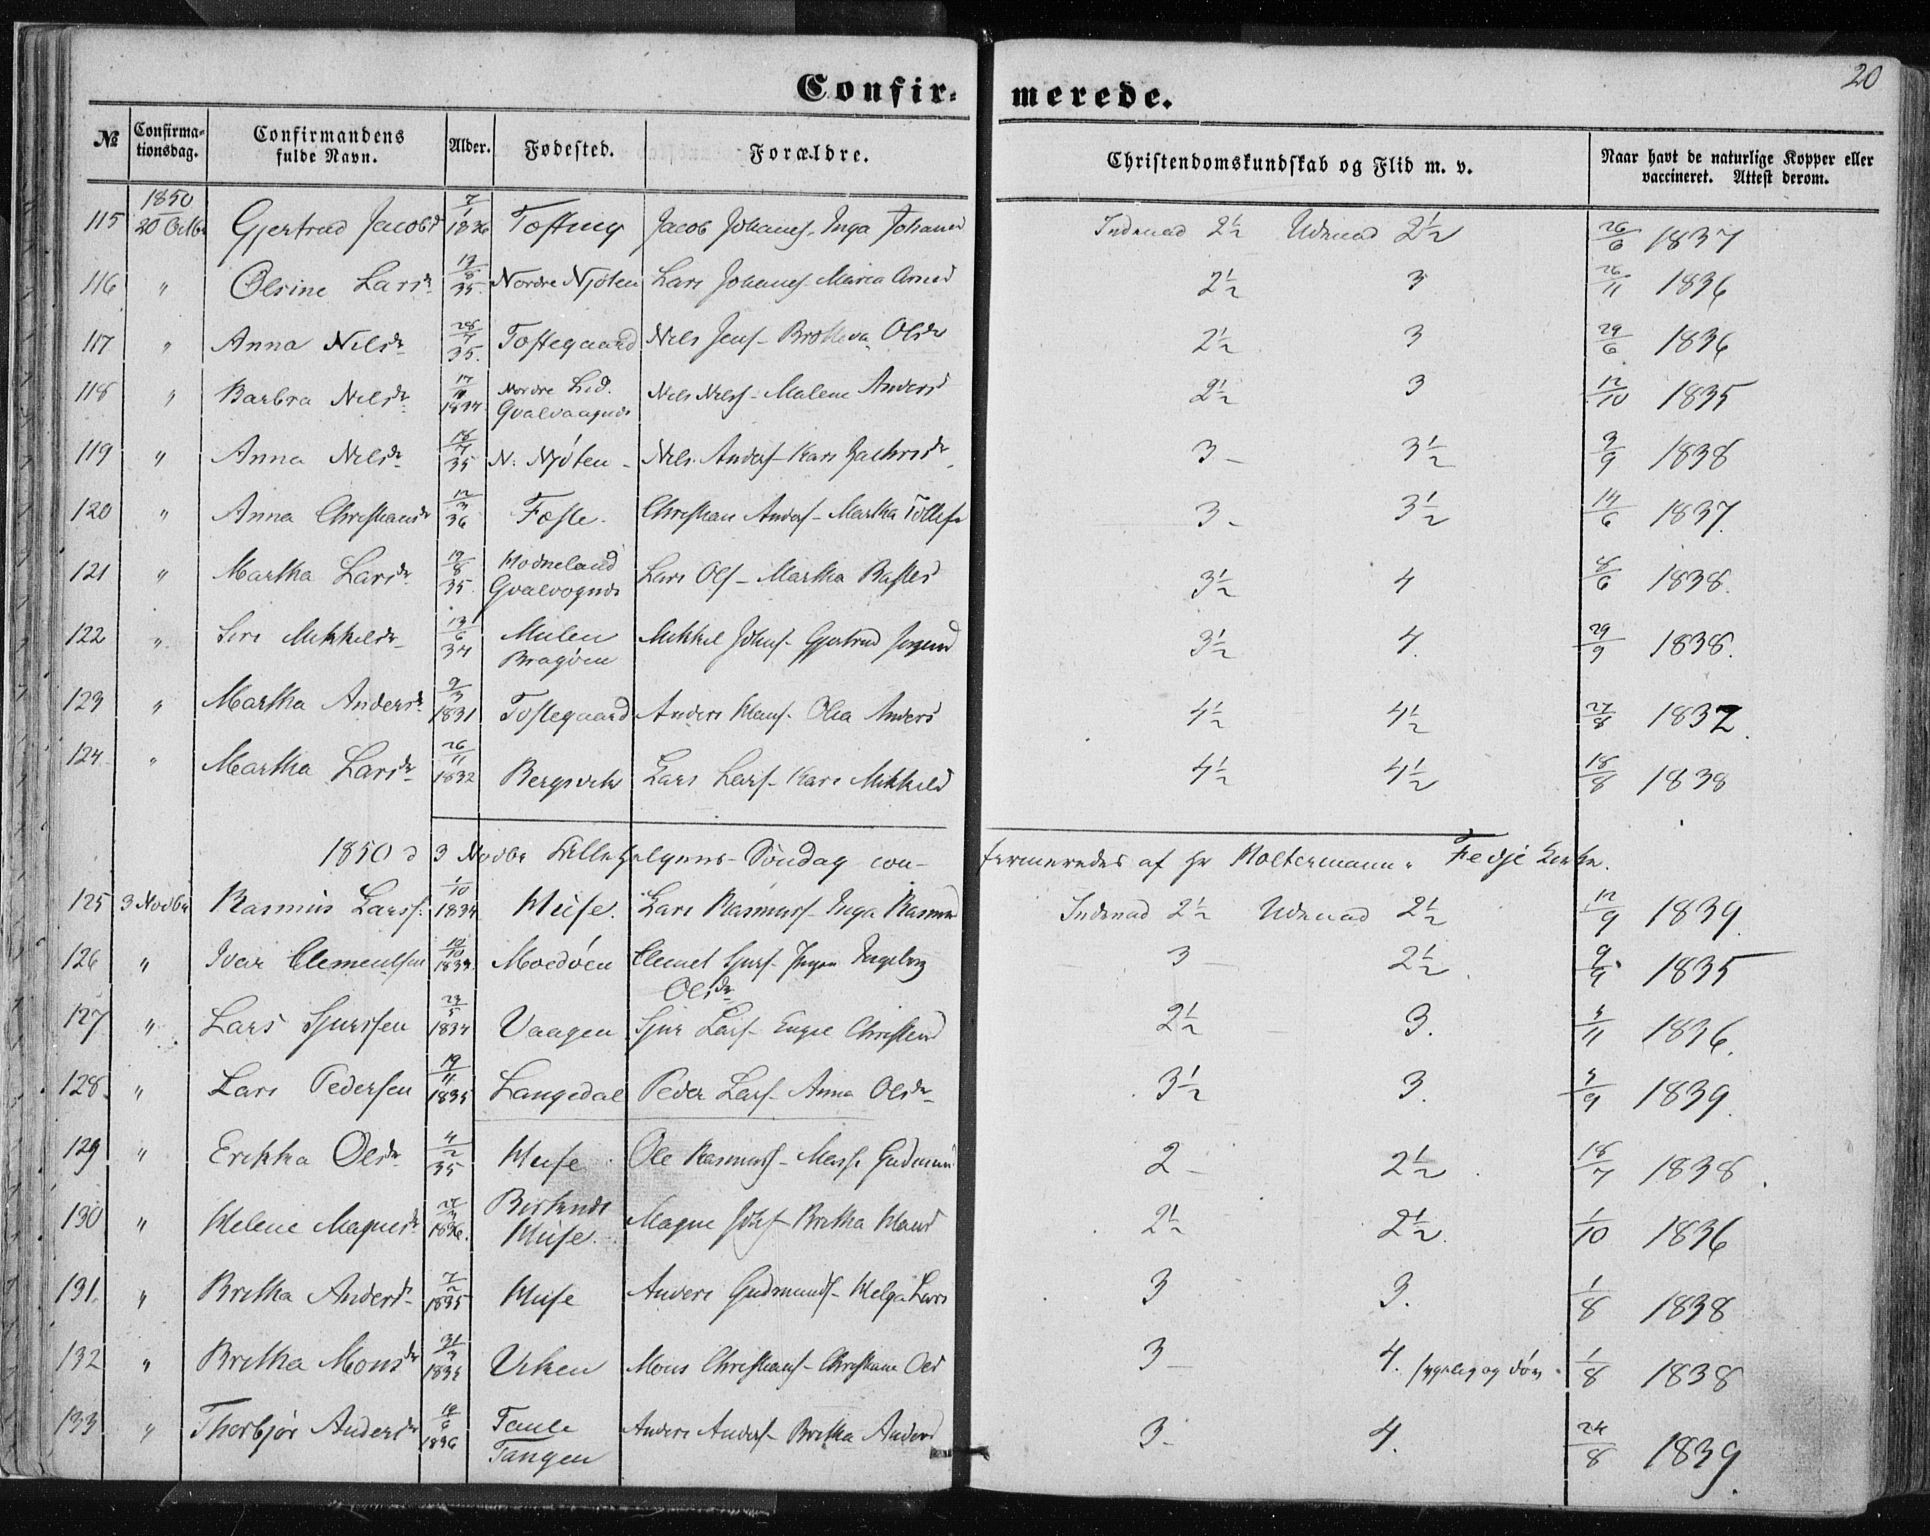 20
Confir- merede.
№ Confirma-tionsdag. Confirmandens fulde Navn. Alder. Fødested. Forældre. Christendomskundskab og Flid m. v. Naar havt de naturlige Kopper eller vaccineret. Attest derom.
1850
115 20 Octbr Gjertrud Jacobsd 7/1 1836 Jacob Johans. Inga Johansd Indenad 2½ Udenad 2½ 26/6 1837
116 " Olsine Larsdr 35. Nordre Njöten Lars Johans Maria 2½ 3 26/11 1836
117 " Anna Nilsdr 35. Tostegaard Nils Jens - Olsdr 2½ 3 29/6 1836
118 " Barbra Nilsdr 1834 Nordre Lid. Gvalvaagnes Nils Nils - Malene Andersd 2½ 3 12/10 1835
119 " Anna Nilsdr 35 N: Njöten - Nils Anders - Kari 3 - 3½ 3/9 1838
120 " Anna Christiansdr 12/3 36 Foste. Christian Anders - Martha Tollefs 3 - 3½ 14/6 1837.
121 " Martha Larsdr 19/8 35. Hodneland Gvalvognes Lars Ols - Martha 3½ 4 8/6 1838.
122 " Siri Mikkelsdr 13/6 34 Mulen Bragöen Mikkel Johns - Gjertrud 3½ 4. 29/9 1838.
123 " Martha Andersdr 2/3 1831 Tostegaard Anders - Olia Andersd 4½ 4½ 27/8 1832.
124. " Martha Larsdr 26/11 1832 Bergsvik Lars Lars - Kari Mikkelsd 4½ 4½ 18/8 1838
1850 d 3 Novbr Lillehelgens-Söndag con- firmeredes af Hr Holtermann i Fedje Kirke.
125 3 Novbr Rasmus Larss. 1/10 1834 Huse. Lars Rasmus - Inga Rasmusd Indenad 2½ Udenad 2½ 12/9 1839.
126 " Ivar Clementsen Moldöen Clemet Sjurs - Ingeborg Olsdr 3 - 2½. 9/9 1835
127 " Lars Sjurssen 23/5 1834 Vaagen Sjur Lars - Christensd 2½ 3. 5/11 1836.
128. " Lars Pedersen 19/11 1835 Langedal Peder Lars - Anna Olsdr 3½ 3. 5/9 1839.
129 " Erikka Olsdr 4/2 35 Huse Ole Rasmus - 2 - 2½. 18/7 1838.
130 " Helene Magnesdr 1836. Huse. Magne - Britha Hansd 2½ 2½. 1/10 1836
131. " Britha Andersd 7/2 1835 Huse Anders Gudmunds - Helga Lars 3 3. 1/8 1838
132 " Britha Monsdr 31/3 1834 Uren Mons Christians - Christiane Olsd 3 - 4. sygelig og döv. 1/8 1838
133 " Thorbjör Andersdr 1836 Faule Tangen Anders Anders - Britha Andersd 3 - 4. 24/8 1839.